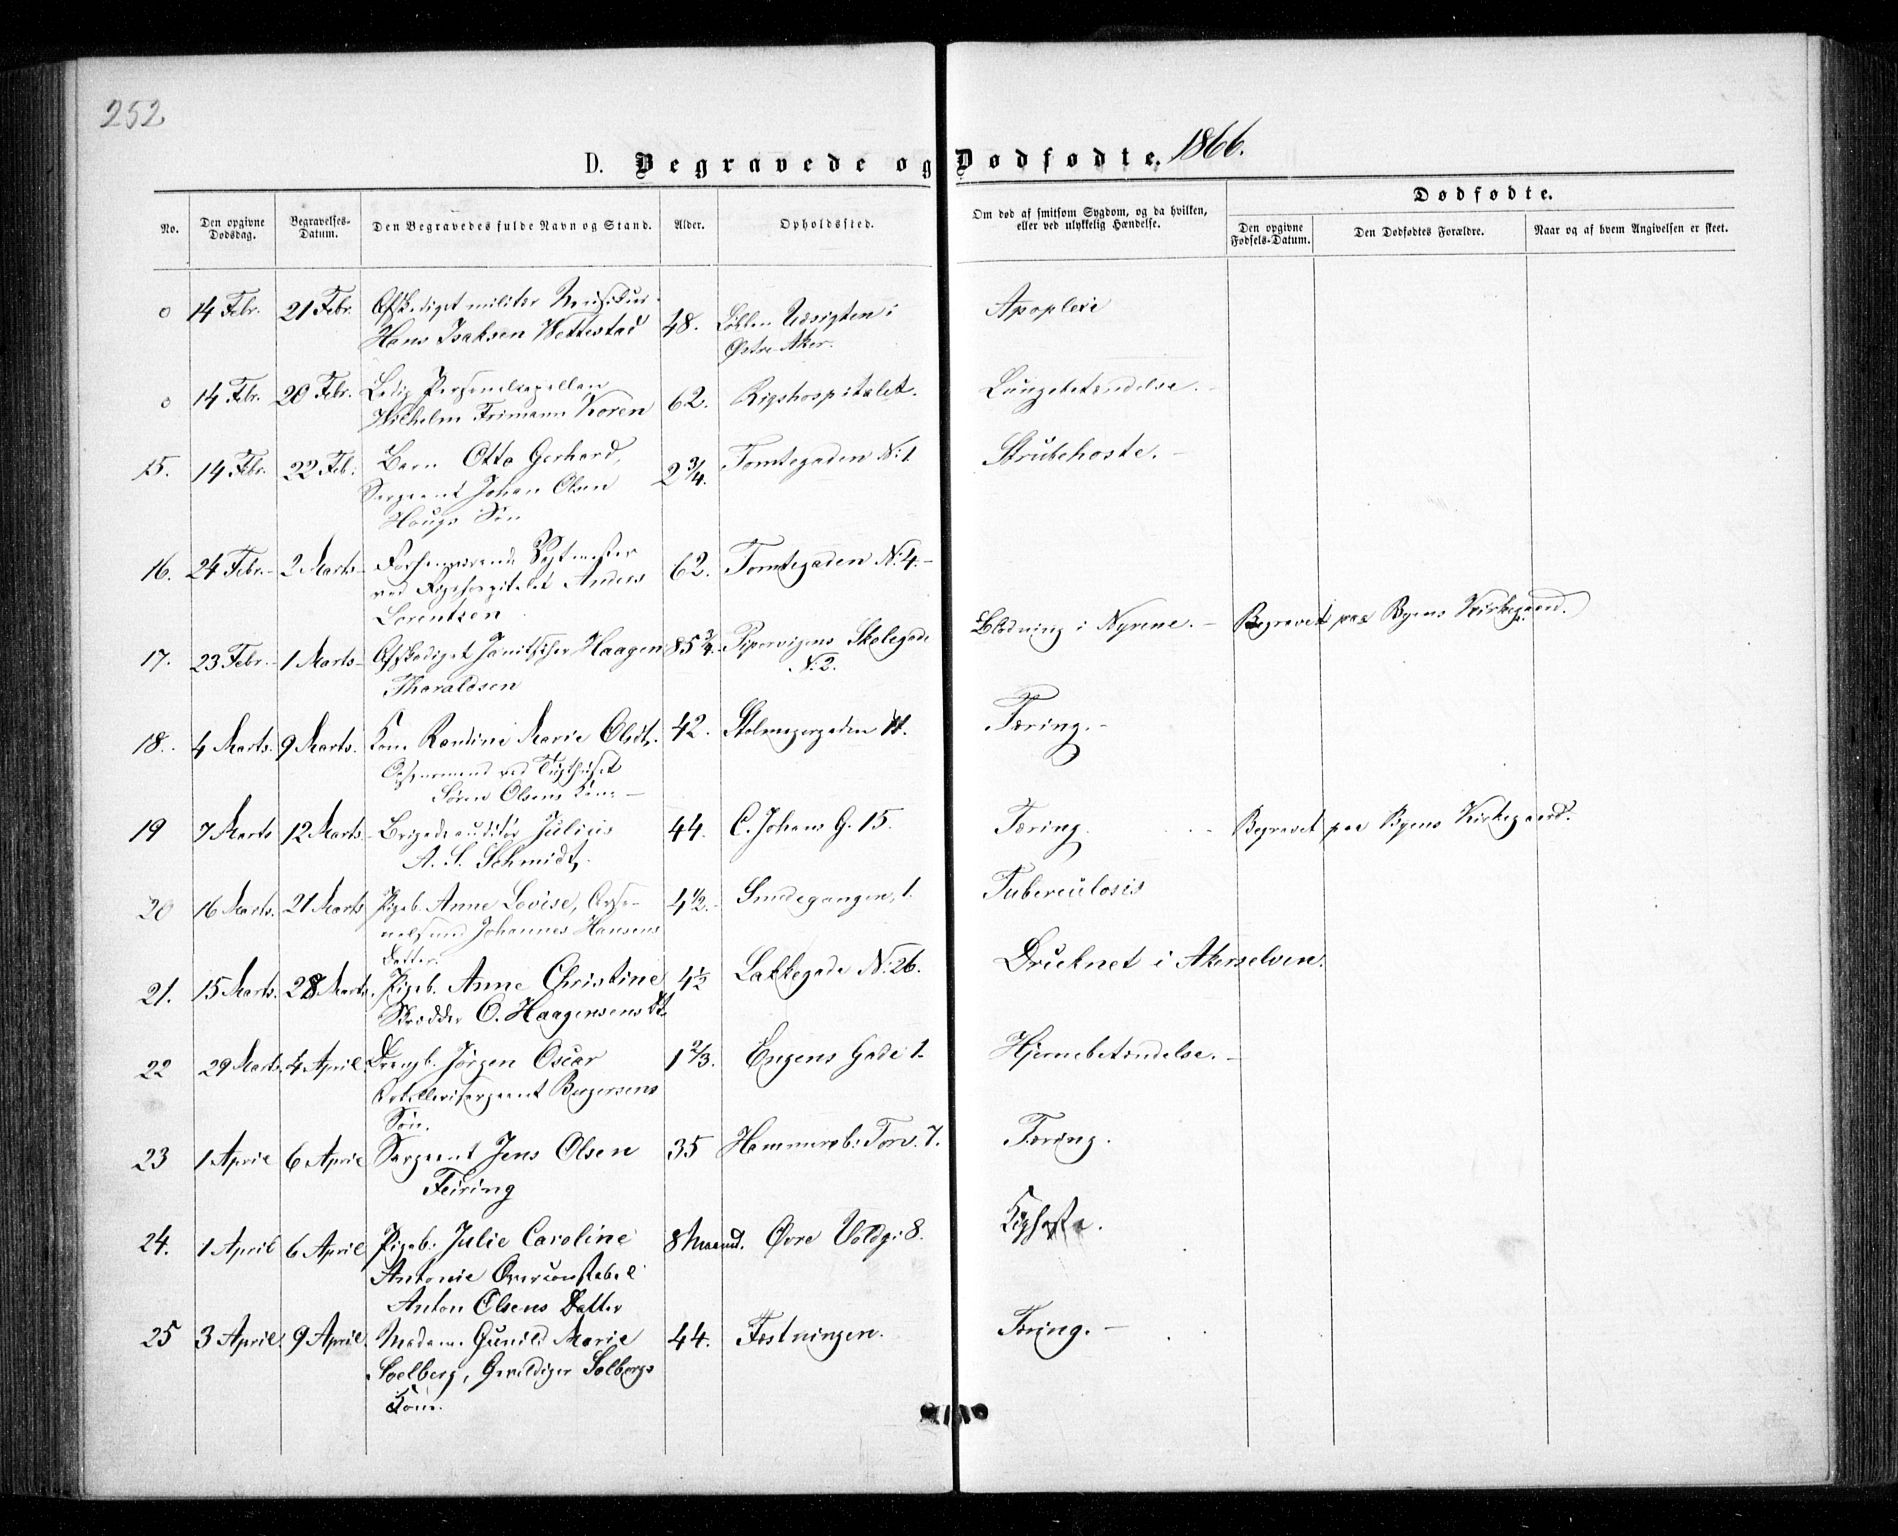 252
D. Begravede og Dødfødte. 1866.
No.
Den opgivne Dødsdag.
Begravelses-Datum.
Den Begravedes fulde Navn og Stand.
Alder.
Opholdssted.
Om død af smitsom Sygdom, og da hvilken, eller ved ulykkelig Hændelse.
Dødfødte.
Den opgivne Fødsels-Datum.
Den Dødfødtes Forældre.
Naar og af hvem Angivelsen er skeet.
o 14 Febr. 21 Febr. Afskediget militær Musikus
Hans Isaksen Wettestad 48. Løkken Udsigten i Apoplexi
Østre Aker.
o 14 Febr. 20 Febr. Ledig Personelcapellan
Wilhelm Frimann Koren 62. Rigshospitalet. Lungebetændelse.
15. 14 Febr. 22 Feb. Barn Otto Gerhard, 2 3/4. Tomtegaden N: 1 Strubehoste.
Sergeant Johan Olsen
Haugs Søn
16. 24 Febr. 2 Marts Forhenværende Rytmester 62. Tomtegaden N: 4.
ved Rigshospitalet Anders
Lorentsen
17. 23 Febr. 1 Marts Afskediget Janitscher Haagen 85 3/4 Pipervigens Skolegade Blødning i Nyrene. Begravet paa Byens Kirkegaard.
Thoraldsen N: 2.
18. 4 Marts. 9 Marts. Kone Randine Marie Olsdt. 42. Stolmagergaden 11. Tæring.
Opsynsmand ved Tugthuset
Søren Olsens Kone
19 7 Marts 12 Marts Brigadeauditør Julius 44. C. Johans G. 15. Tæring. Begravet paa Byens Kirkegaard.
A. S. Schmidt,
20 16 Marts. 21 Marts Pigeb. Anne Lovise, 4 1/2. Smedegangen, 1. Tuberculosis
Johannes Hansens
Datter.
21. 15 Marts. 28 Marts. Pigeb. Anne Christine 4 1/2 Lakkegade N: 26. Druknet i Akerselven.
Skrædder O. Haagensens Dt.
22 29 Marts. 4 April. Drengb. Jørgen Oscar 1 2/3. Engens Gade 1. Hjernebetændelse.
Artillerisergeant Bergersens
Søn.
23 1 April 6 April Sergeant Jens Olsen 35 Hammersb: Torv. 7. Tæring.
Feiring
24. 1 April 6 April Pigeb. Julie Caroline 8 Maaned. Øvre Voldg: 8. Kighoste.
Antonie Overconstabel
Anton Olsens Datter
25 3 April. 9 April. Madam. Gunild Marie 44. Fæstningen. Tæring.
Soelberg, Gevaldiger Solbergs
Kone.